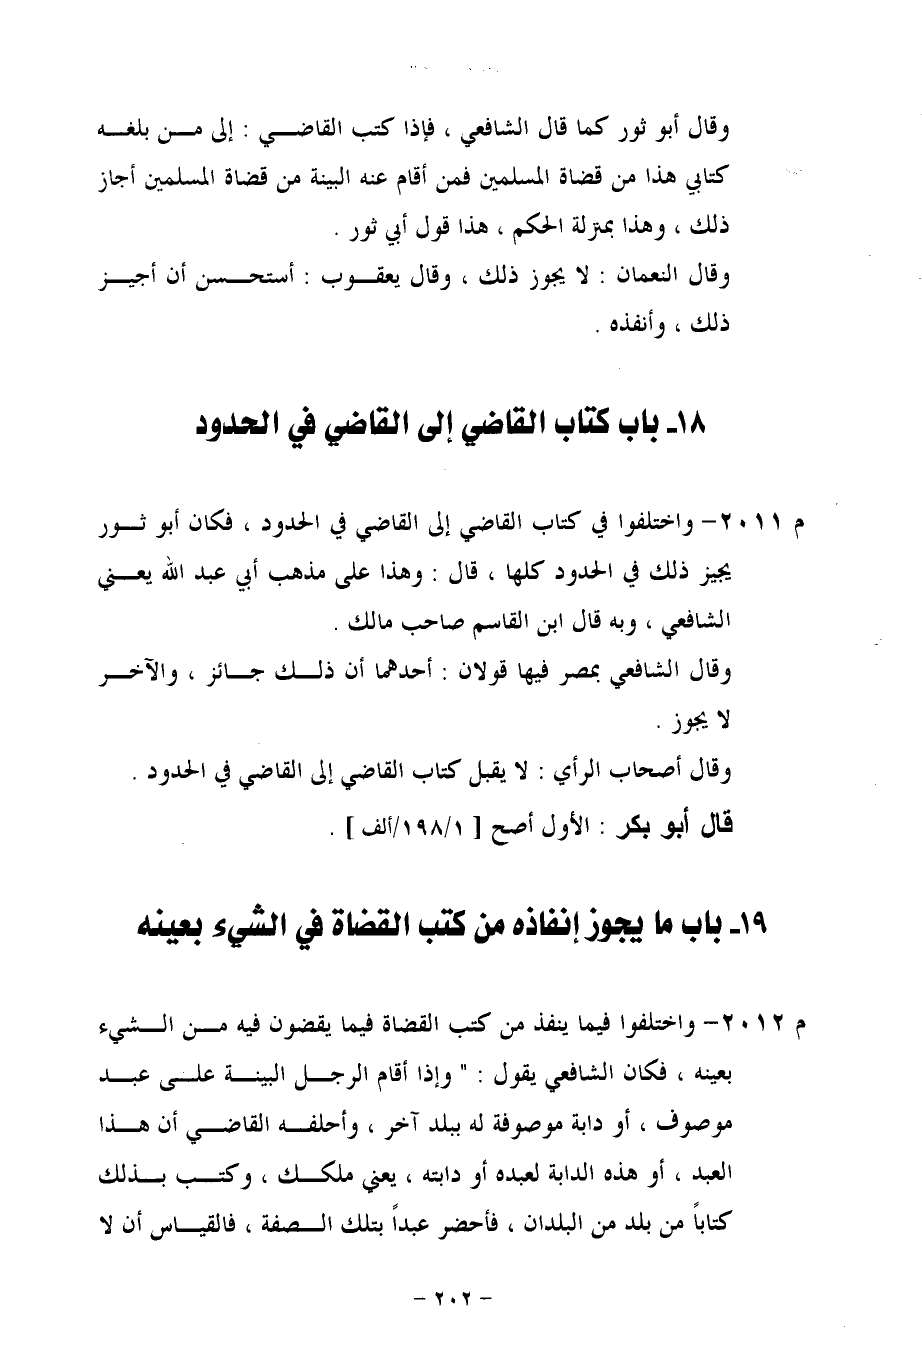 وقال أبو ثور كما قال الشافعي ، فإذا كتب القاضي : إلى من بلغه
كتابي هذا من قضاة المسلمين فمن أقام عنه البينة من قضاة المسلمين أجاز
ذلك ، وهذا بمترلة الحكم ، هذا قول أبي ثور .
وقال النعمان : لا يجوز ذلك ، وقال يعقوب : أستحسن أن أجيز
ذلك ، وأنفذه .
١٨ـ باب كتاب القاضي إلى القاضي في الحدود
م ٢٠١١– واختلفوا في كتاب القاضي إلى القاضي في الحدود ، فكان أبو ثور
يجيز ذلك في الحدود كلها ، قال : وهذا على مذهب أبي عبد الله يعني
الشافعي ، وبه قال ابن القاسم صاحب مالك .
وقال الشافعي بمصر فيها قولان : أحدهما أن ذلك جائز ، والآخر
لا يجوز .
وقال أصحاب الرأي : لا يقبل كتاب القاضي إلى القاضي في الحدود .
قال أبو بكر : الأول أصح [ ١/١٩٨/ألف ] .
١٩ـ باب ما يجوز إنفاذه من كتب القضاة في الشيء بعينه
م ٢٠١٢– واختلفوا فيما ينفذ من كتب القضاة فيما يقضون فيه من الشيء
بعينه ، فكان الشافعي يقول : " وإذا أقام الرجل البينة على عبد
موصوف ، أو دابة موصوفة له ببلد آخر ، وأحلفه القاضي أن هذا
العبد ، أو هذه الدابة لعبده أو دابته ، يعني ملكك ، وكتب بذلك
كتاباً من بلد من البلدان ، فأحضر عبداً بتلك الصفة ، فالقياس أن لا
– ٢٠٢ –